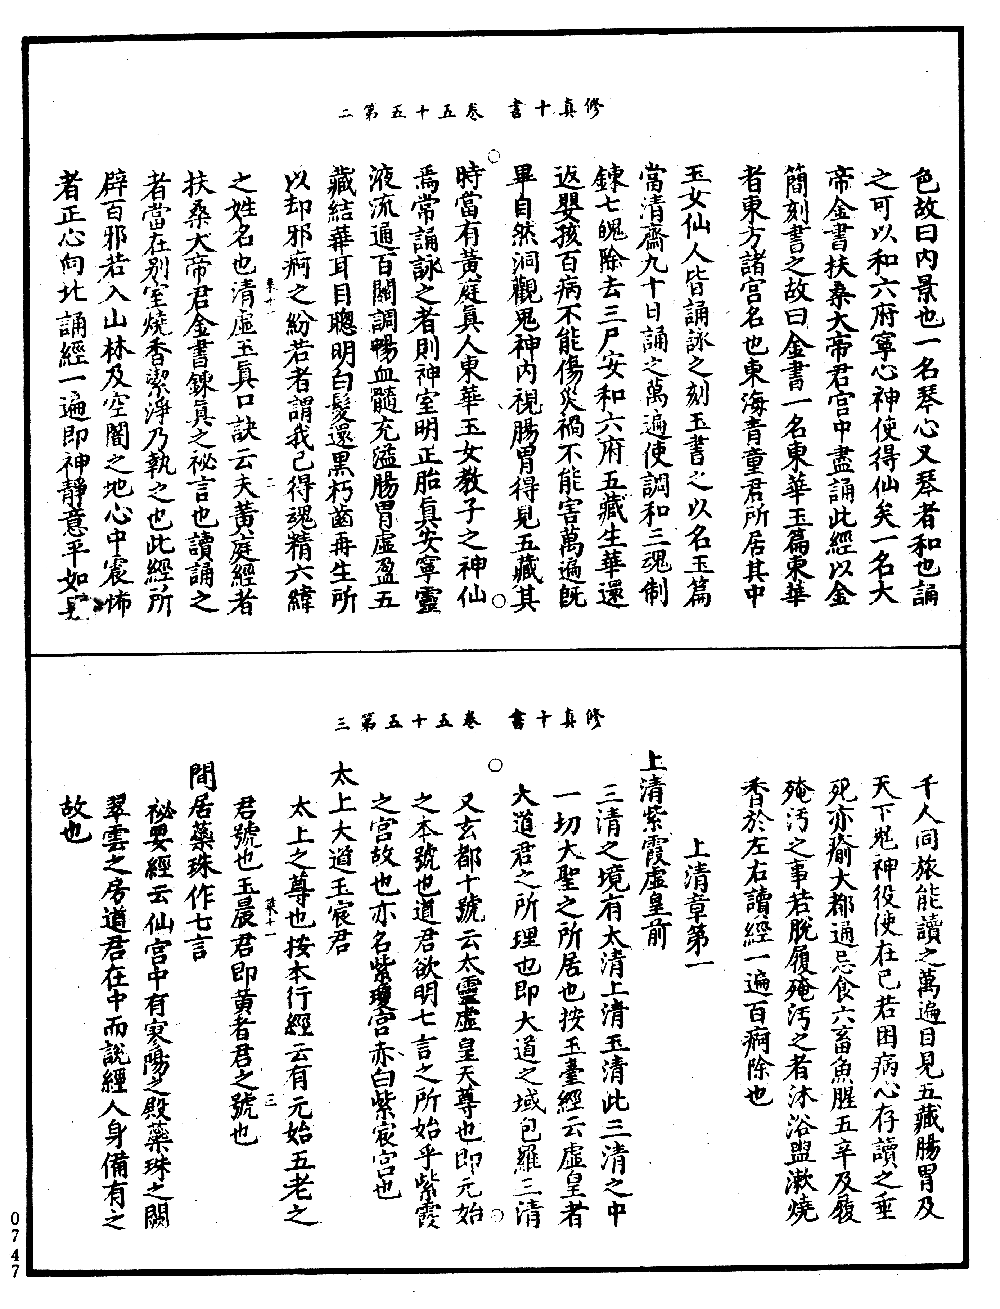 修真十書　卷五十五第二
色故曰内景也一名琴心又琴者和也誦
之可以和六府寧心神使得仙矣一名大
帝金書扶桑大帝君宮中盡誦此經以金
簡刻書之故曰金書一名東華玉篇東華
者東方諸宮名也東海青童君所居其中
玉女仙人皆誦詠之刻玉書之以名玉篇
當清齋九十日誦之萬遍使調和三魂制
鍊七魄除去三尸安和六府五藏生華還
返嬰孩百病不能傷災禍不能害萬遍既
畢自然洞觀鬼神内視腸胃得見五藏其
時當有黃庭眞人東華玉女教子之神仙
焉常誦詠之者則神室明正胎眞安寧靈
液流通百關調暢血髓充溢腸胃虛盈五
藏結華耳目聰明白髮還黑朽齒再生所
以却邪痾之紛若者謂我已得魂精六緯
菜十一　二
之姓名也清虛玉眞口訣云夫黃庭經者
扶桑大帝君金書鍊眞之祕言也讀誦之
者當在别室燒香潔淨乃執之也此經所
辟百邪若入山林及空闇之地心中震怖
者正心向北誦經一遍即神靜意平如與
修真十書　卷五十五第三
千人同旅能讀之萬遍目見五藏腸胃及
天下鬼神役使在己若困病心存讀之垂
死亦瘉大都通忌食六畜魚腥五辛及履
殗汚之事若脫履殗汚之者沐浴盥漱燒
香於左右讀經一遍百痾除也
上清章第一
上清紫霞虛皇前
三清之境有太清上清玉清此三清之中
一切大聖之所居也按玉臺經云虛皇者
大道君之所理也即大道之域包羅三清
又玄都十號云太靈虛皇天尊也即元始
之本號也道君欲明七言之所始乎紫霞
之宮故也亦名紫瓊宮亦曰紫宸宮也
太上大道玉宸君
太上之尊也按本行經云有元始五老之
菜十一　三
君號也玉晨君即黄老君之號也
閒居蘂珠作七言
祕要經云仙宮中有寥陽之殿蘂珠之闕
翠雲之房道君在中而說經人身備有之
故也
0747